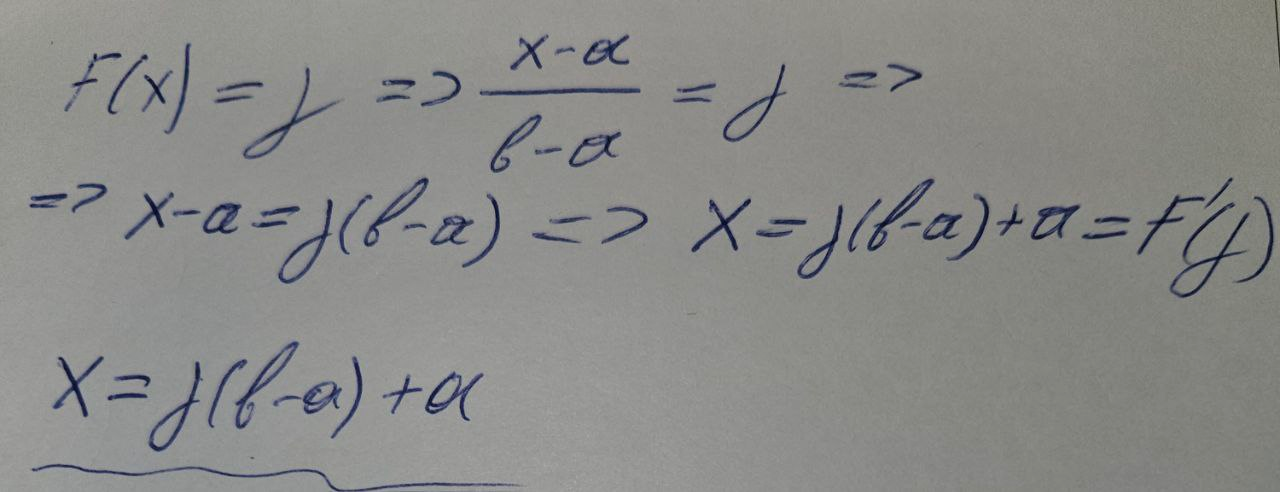 F(x) = y => x-a / b-a = y =>
=> x-a = y(b-a) => X = y(b-a)+a = F'(y)
X = y(b-a)+a